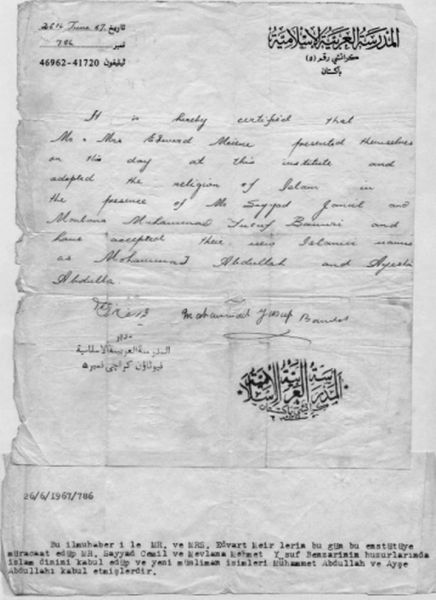 المدرسة العربية الإسلامية
كراتشي رقم (٥)
باكستان
تاريخ 26th June 67.
نمبر 786
ٹیلیفون 41720-46962
It is hereby certified that
Mr & Mrs Edward presented themselves
on this day at this institute and
adopted the religion of Islam in
the presence of Mr Sayyad Jamil and
Maulana Mohammad Yusuf Bannuri and
have accepted their new Islamic names
as Mohammad Abdullah and Ayesha
Abdulla
Mohammad Yusuf
مدير
المدرسة العربية الاسلامية
نيوتاؤن كراچی نمبر ۵
المدرسة العربية الإسلامية
كراتشي باكستان
26/6/1967/786
Bu ilmuhaber i le MR. ve MRS. Edvart Meir lerin bu gün bu enstütüye
müracaat edüp MR. Sayyad Cemil ve Mevlana Mehmet Y suf Benzarinin huzurlarında
islam dinimi kabul edüp ve yeni müslimam isimleri Muhammet Abdullah ve Ayşe
Abdullahı kabul etmişlerdir.